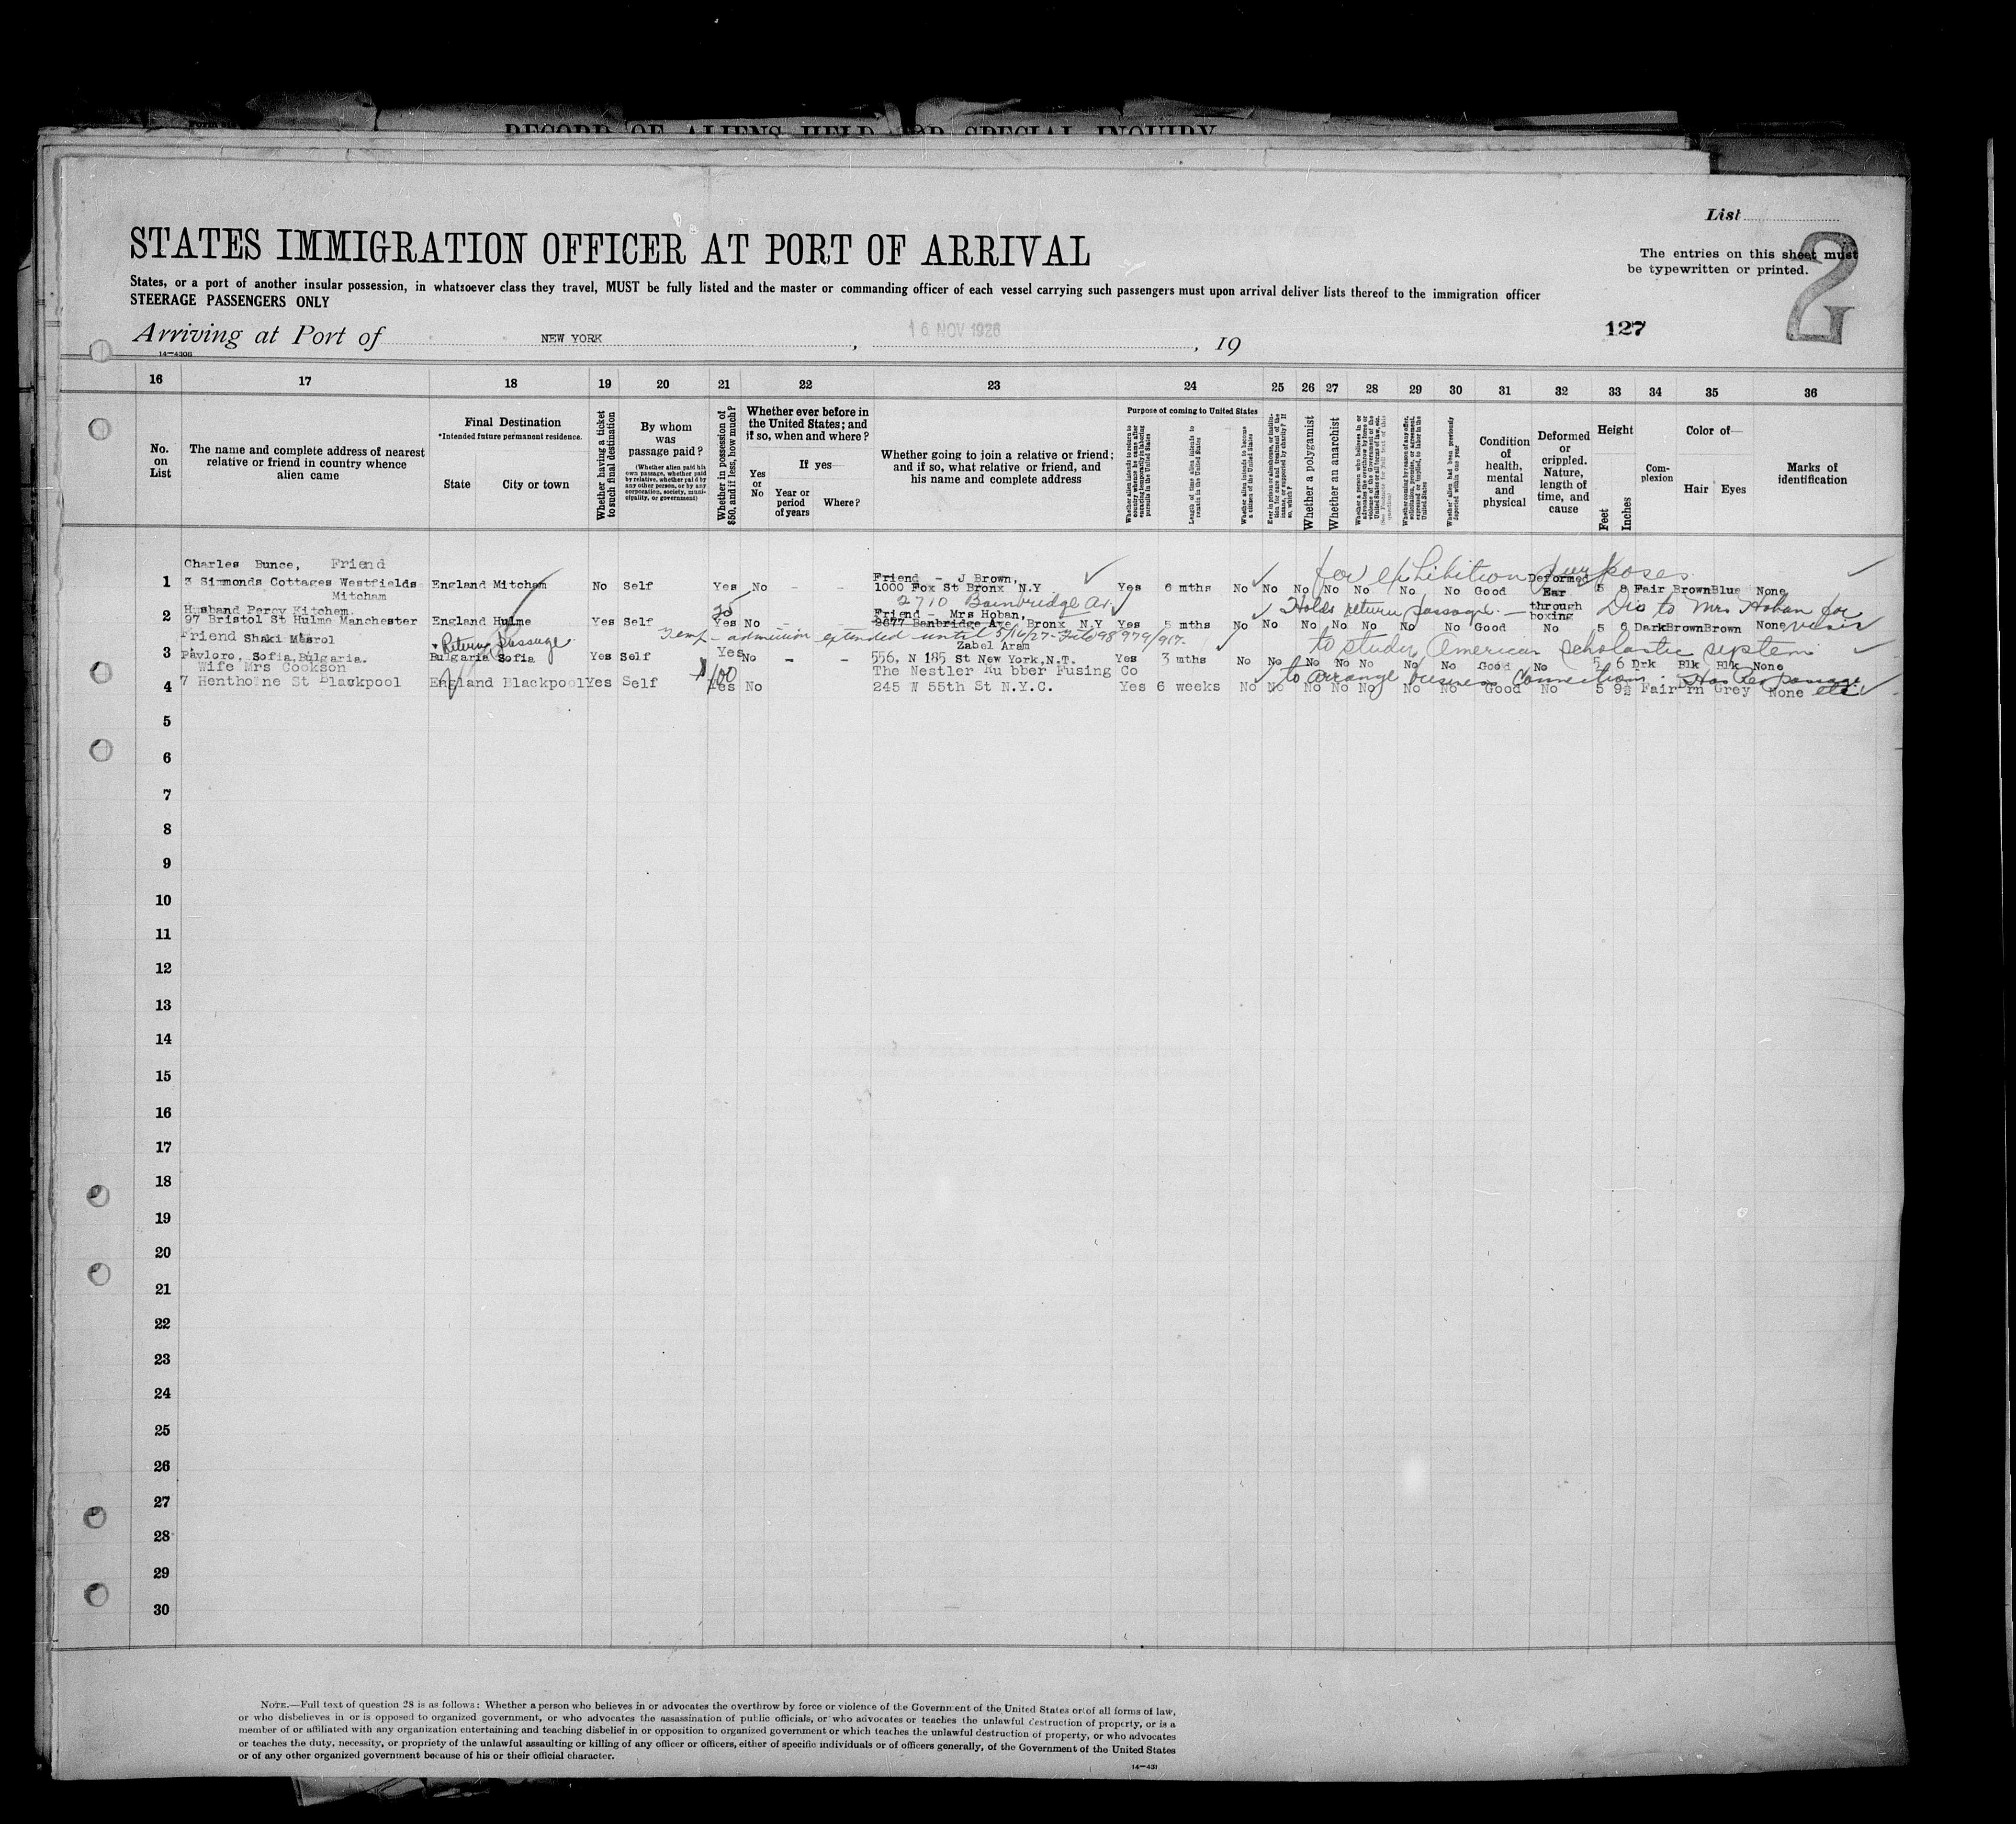 RECORD OF ALIENS HELD FOR SPECIAL INQUIRY
List
2
STATES IMMIGRATION OFFICER AT PORT OF ARRIVAL
The entries on this sheet must
be typewritten or printed.
States, or a port of another insular possession, in whatsoever class they travel, MUST be fully listed and the master or commanding officer of each vessel carrying such passengers must upon arrival deliver lists thereof to the immigration officer
STEERAGE PASSENGERS ONLY
Arriving at Port of NEW YORK, 16 NOV 1926, 19
127
14-4306
16 17 18 19 20 21 22 23 24 25 26 27 28 29 30 31 32 33 34 35 36
No. on List
The name and complete address of nearest relative or friend in country whence alien came
Final Destination
*Intended future permanent residence.
State
City or town
Whether having a ticket to such final destination
By whom was passage paid?
(Whether alien paid his own passage, whether paid by relative, whether paid by any other person, or by any corporation, society, municipality, or government)
Whether in possession of $50, and if less, how much?
Whether ever before in the United States; and if so, when and where?
Yes or No
If yes—
Year or period of years
Where?
Whether going to join a relative or friend; and if so, what relative or friend, and his name and complete address
Purpose of coming to United States
Whether alien intends to return to country whence he came after engaging temporarily in laboring pursuits in the United States
Length of time alien intends to remain in the United States
Whether alien intends to become a citizen of the United States
Ever in prison or almshouse, or institution for care and treatment of the insane, or supported by charity? If so, which?
Whether a polygamist
Whether an anarchist
Whether coming by reason of any offer, solicitation, promise, or agreement, expressed or implied, to labor in the United States
Whether alien had been previously deported within one year
Condition of health, mental and physical
Deformed or crippled. Nature, length of time, and cause
Height
Feet
Inches
Complexion
Color of—
Hair
Eyes
Marks of identification
Charles Bunce, Friend
for exhibition purposes
1 3 Simmonds Cottages Westfields England Mitcham No Self Yes No - - Friend - J Brown, 1000 Fox St Bronx N.Y Yes 6 mths No No No No No No No Good Deformed Ear through boxing 5 8 Fair Brown Blue None
Mitcham
2710 Bainbridge Av.
Holds return passage. — Dis to Mrs Hoban for
Husband Percy Kitchem.
25
2 97 Bristol St Hulme Manchester England Hulme Yes Self Yes No - - Friend - Mrs Hoban, 2677 Banbridge Ave, Bronx N.Y Yes 5 mths No No No No No No No Good No 5 6 Dark Brown Brown None
Temp- admission extended until 5/16/27-
Friend Shaki
Return Passage
Zabel Aram
to study American scholastic system
3 Pavloro, Sofia, Bulgaria. Bulgaria Sofia Yes Self Yes No - - 556, N 185 St New York, N.T. Yes 3 mths No No No No No No No Good No 5 6 Drk Blk Blk None
Wife Mrs Cookson
$100
The Nestler Ru bber Fusing Co
to arrange business connections. Has Ret passage
4 7 Henthorne St Blackpool England Blackpool Yes Self Yes No 245 W 55th St N.Y.C. Yes 6 weeks No No No No No No No Good No 5 9½ Fair Brn Grey None
5
6
7
8
9
10
11
12
13
14
15
16
17
18
19
20
21
22
23
24
25
26
27
28
29
30
NOTE.—Full text of question 28 is as follows: Whether a person who believes in or advocates the overthrow by force or violence of the Government of the United States or of all forms of law,
or who disbelieves in or is opposed to organized government, or who advocates the assassination of public officials, or who advocates or teaches the unlawful destruction of property, or is a
member of or affiliated with any organization entertaining and teaching disbelief in or opposition to organized government or which teaches the unlawful destruction of property, or who advocates
or teaches the duty, necessity, or propriety of the unlawful assaulting or killing of any officer or officers, either of specific individuals or of officers generally, of the Government of the United States
or of any other organized government because of his or their official character.
14-431